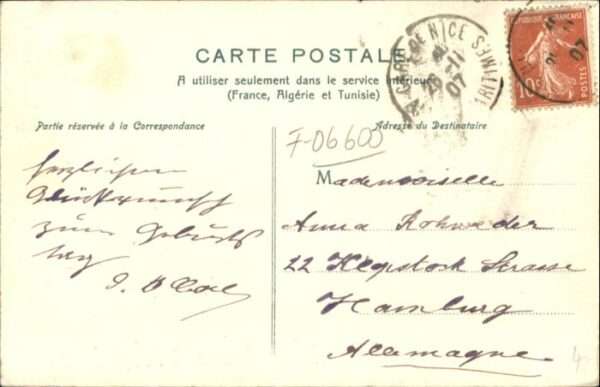 CARTE POSTALE
A utiliser seulement dans le service intérieur
(France, Algérie et Tunisie)
Partie réservée à la Correspondance
Adresse du Destinataire
herzlichen
Glückwunsch
zum Geburts
tag
F-06600
Mademoiselle
Anna Rohweder
22 Klopstock Strasse
Hamburg
Allemagne
GARE DE NICE
11
07
RÉPUBLIQUE FRANÇAISE
10c
POSTES
07
4